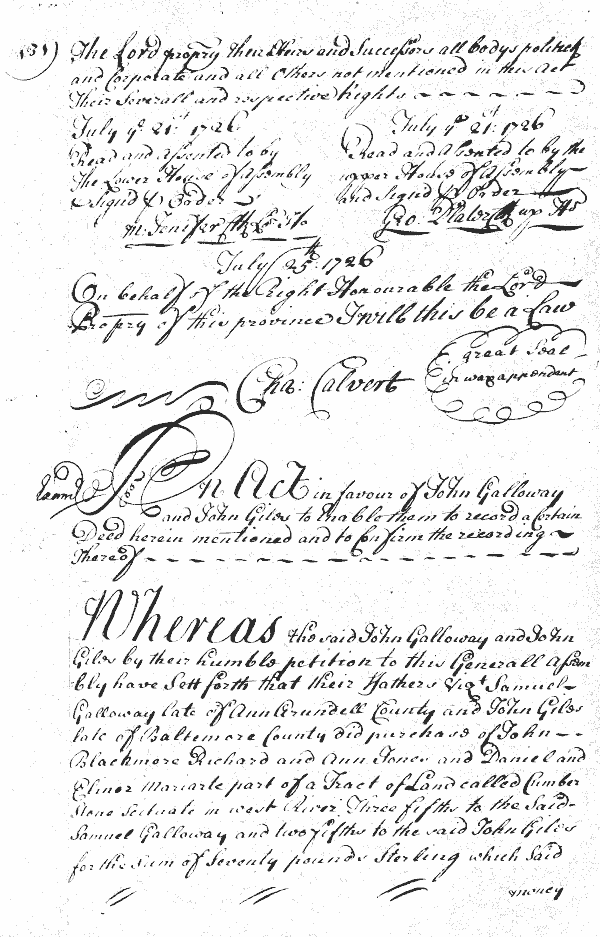 131)
The Lord propry their Heirs and Successors all bodys politick
and Corporate and all Others not mentioned in this Act
their Severall and respective rights
July ye 21st 1726
Read and assented to by
The Lower House of Assembly
& Signd p Order
M: Jenifer Clk Lo Ho
July ye 21st 1726
Read and Assented to by the
upper House of Assembly
and Signd p Order
Geo: Plater Clk up Ho
July 25th 1726
On behalf of the Right Honourable the Lord
Propry of this province I will this be a Law
Cha: Calvert
great Seal
in wax appendent
Examd
An Act in favour of John Galloway
and John Giles to Enable them to record a Certain
Deed herein mentioned and to Confirm the recording
thereof
Whereas the said John Galloway and John
Giles by their humble petition to this Generall Assem
bly have Sett forth that their Fathers Vizt Samuel
Galloway late of Ann Arundell County and John Giles
late of Baltemore County did purchase of John
Blackmore Richard and Ann Jones and Daniel and
Elinor Mariarte part of a Tract of Land called Cumber
Stone Scituate in west River Three fifths to the Said
Samuel Galloway and two fifths to the said John Giles
for the Sum of Seventy pounds Sterling which Said
money